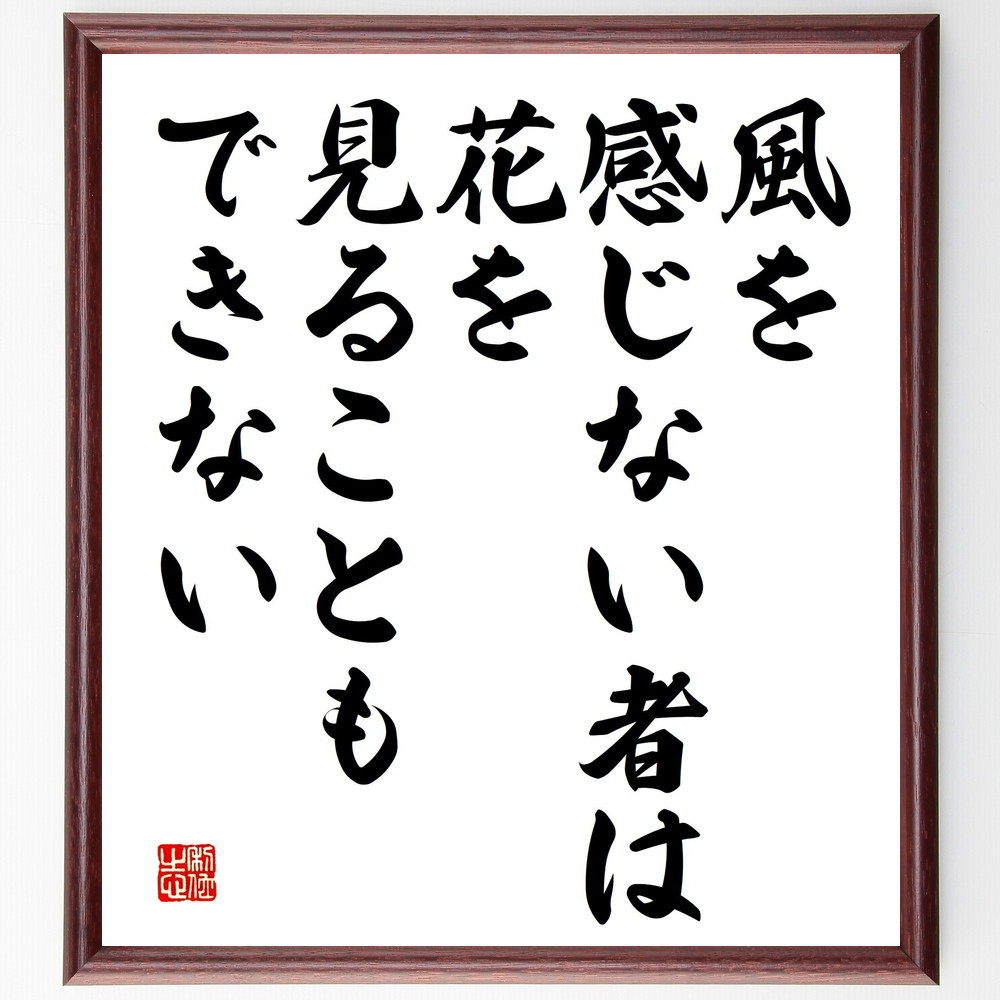 風を
感じない者は
花を
見ることも
できない